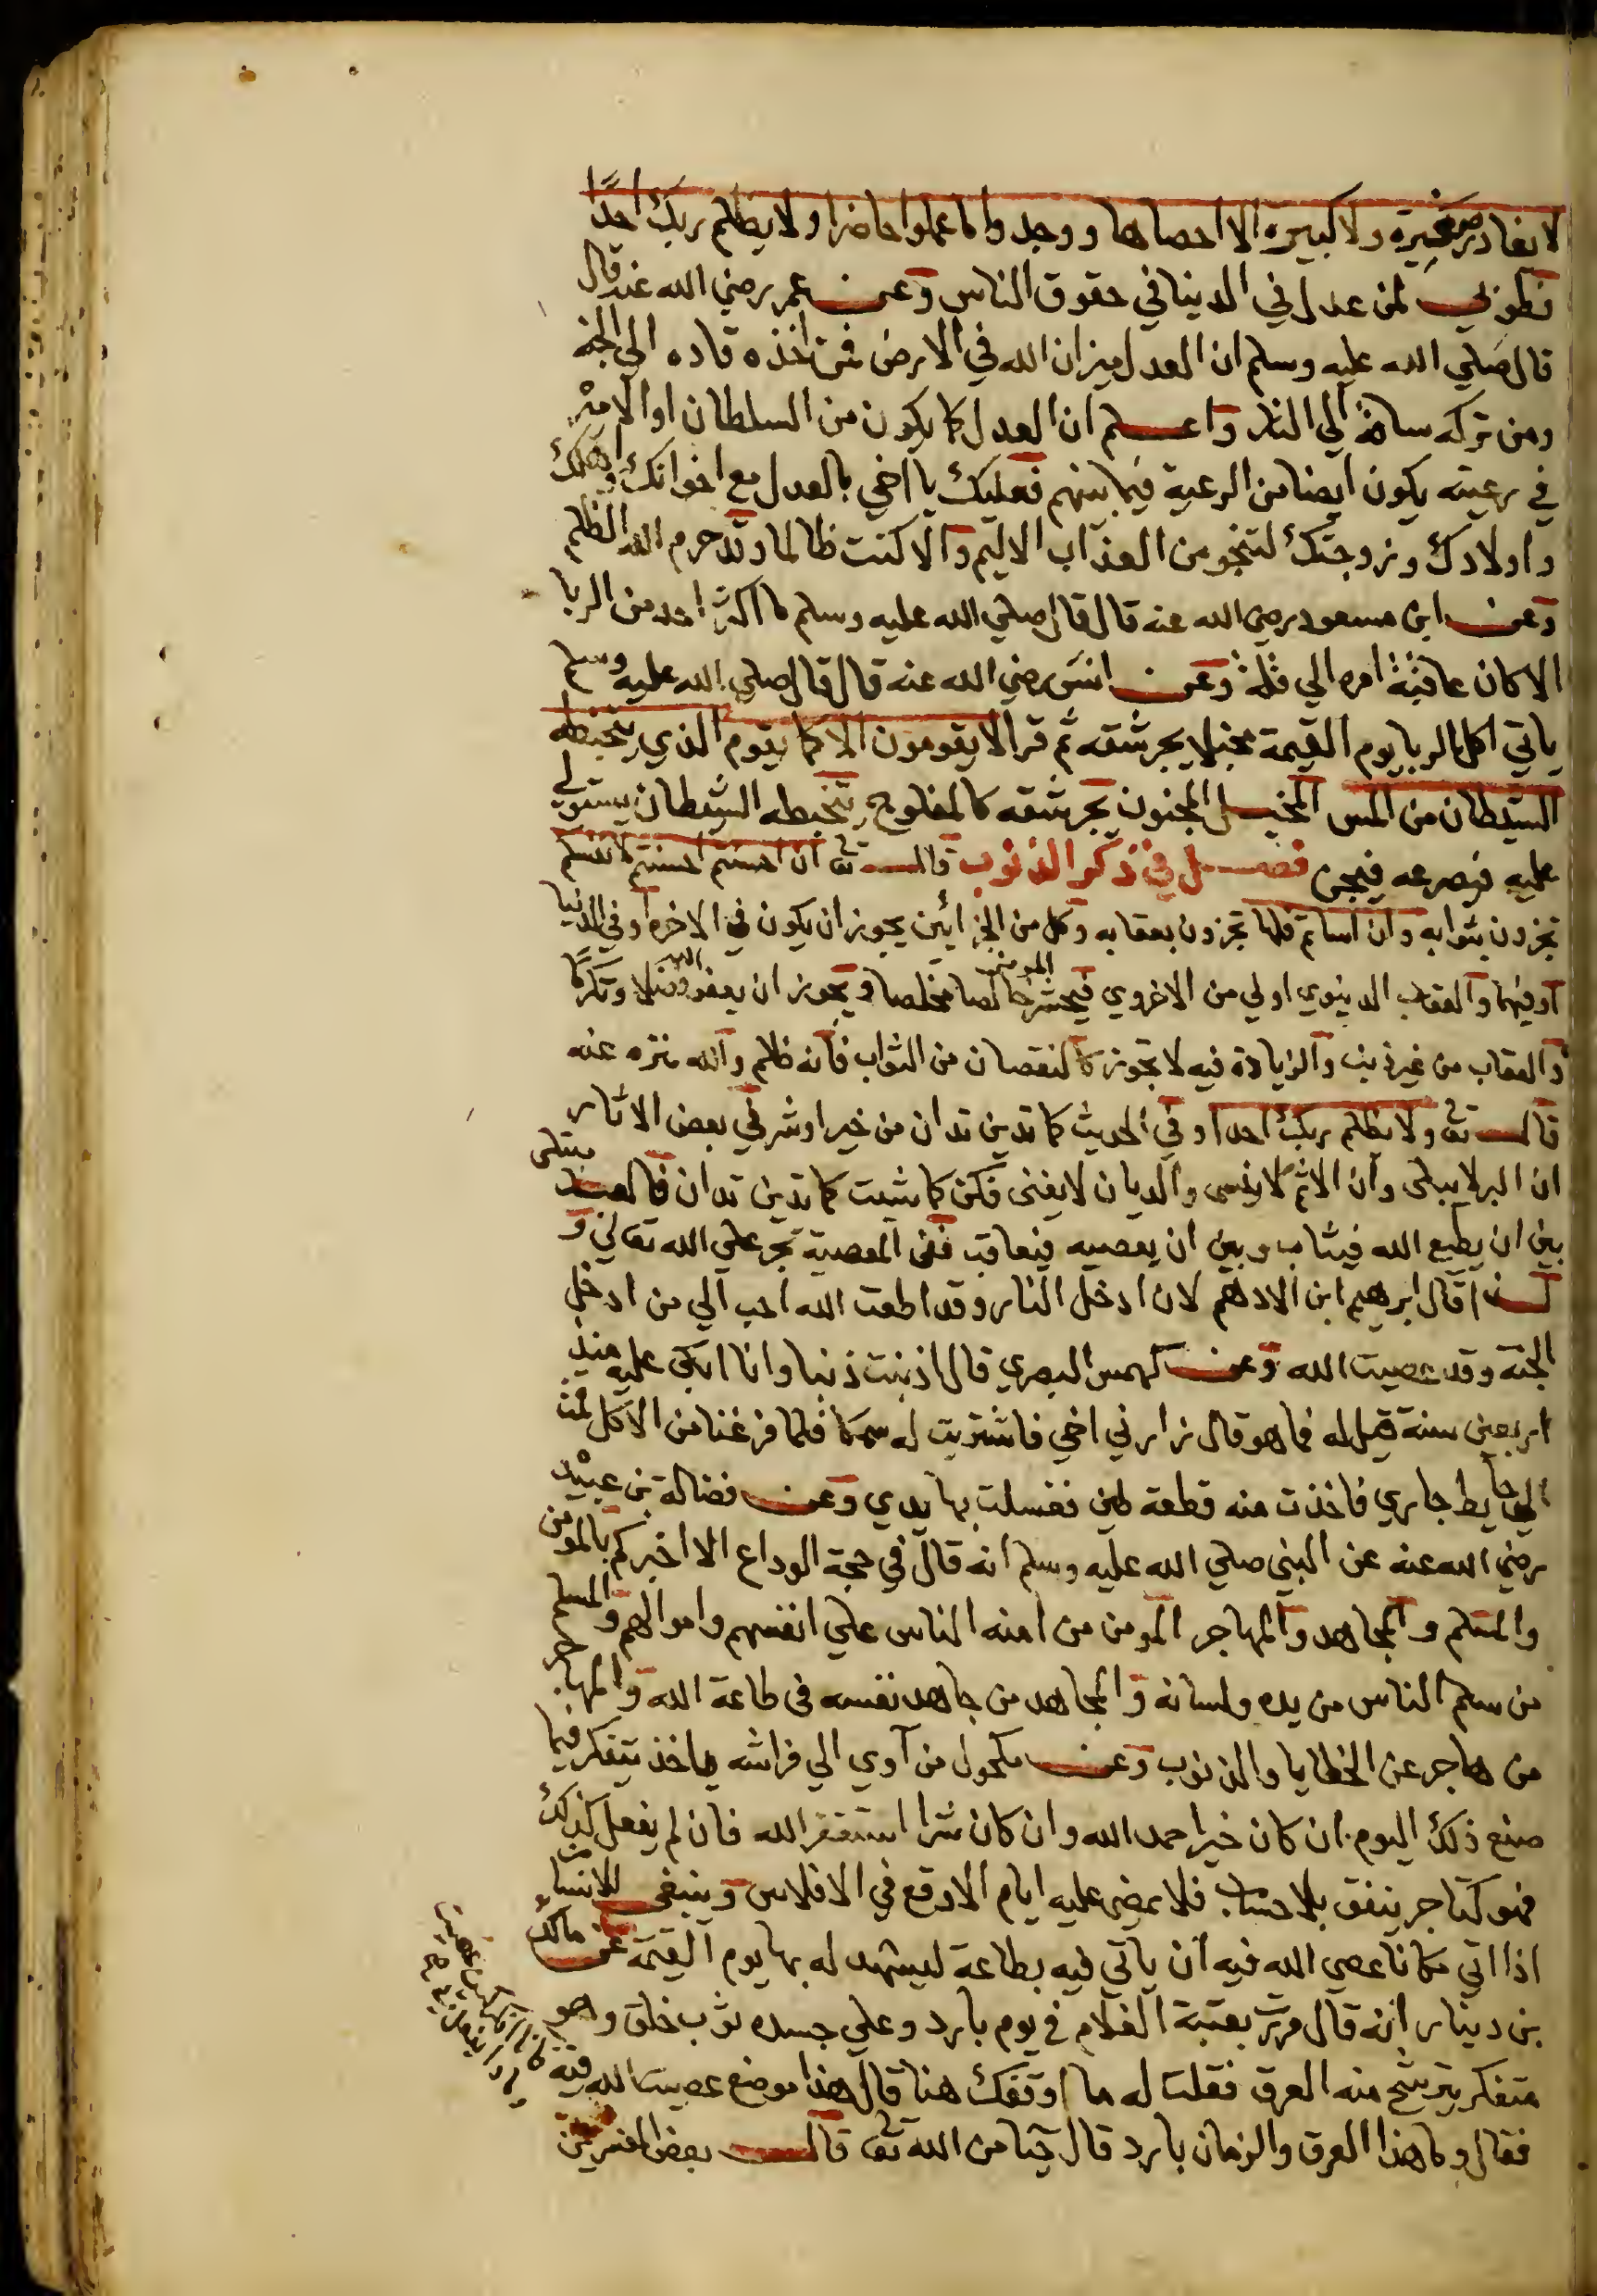 لا يغادر صغيرة ولا كبيرة الا احصاها ووجدوا ما عملوا حاضرا ولا يظلم ربك احدًا
فطوبى لمن عدل في الدينا في حقوق الناس وعن عمر رضي الله عنه قال
قال صلي الله عليه وسلم ان العدل ميزان الله في الارض فمن اخذه قاده الي الجنة
ومن تركه ساقه الي النار واعلم ان العدل كما يكون من السلطان او الامير
في رعيته يكون ايضا من الرعية فيما بينهم فعليك يا اخي بالعدل مع اخوانك واهلك
واولادك وزوجتك لتنجو من العذاب الاليم والا كنت ظالما وقد حرم الله الظلم
وعن ابن مسعود رضي الله عنه قال قال صلي الله عليه وسلم ما اكثر احد من الربا
الا كان عاقبة امره الي قلة وعن انس رضي الله عنه قال قال صلي الله عليه وسلم
ياتي اكل الربا يوم القيمة مخبلا يجر شقه ثم قرا لا يقومون الا كما يقوم الذي يتخبطه
الشيطان من المس المخبل المجنون يجر شقه كالمفلوج يتخبطه الشيطان يستولي
عليه فيصرعه فيجن فصل في ذكر الذنوب قال تع ان احسنتم احسنتم لانفسكم
تجزون بثوابه وان اساتم فلها تجزون بعقابه وكل من الجزائين يجوز ان يكون في الاخره او في الدنيا
او فيهما والعقاب الدينوي اولي من الاخروي فيحشر المومن خالصا مخلصا ويجوز ان يعفو الله فضلا وتكرمًا
والعقاب من غير ذنب والزيادة فيه لا تجوز كالنقصان من الثواب فانه ظلم والله منزه عنه
قال تع ولا يظلم ربك احدا وفي الحديث كما تدين تدان من خير او شر في بعض الاثار
ان البر لا يبلى وان الاثم لا ينسى والديان لا يفنى فكن كما شيت كما تدين تدان فالعبد مبتلى
بين ان يطيع الله فيثاب وبين ان يعصيه فيعاقب فمن المعصية تجر علي الله تعالي و
لهذا قال ابرهيم ابن الادهم لان ادخل النار وقد اطعت الله احب الي من ادخل
الجنة وقد عصيت الله وعن كهمس البصري قال اذنبت ذنبا وانا ابكي عليه منذ
اربعين سنة قيل له فما هو قال زارني اخي فاشتريت له سمكا فلما فرغنا من الاكل قمت
الي حايط جاري فاخذت منه قطعة طين فغسلت بها يدي وعن فضالة بن عبيد
رضي الله عنه عن النبي صلي الله عليه وسلم انه قال في حجة الوداع الا اخبركم بالمومن
والمسلم والمجاهد والمهاجر المومن من امنه الناس علي انفسهم واموالهم والمسلم
من سلم الناس من يده ولسانه والمجاهد من جاهد نفسه في طاعة الله والمهاجر
من هاجر عن الخطايا والذنوب وعن مكحول من آوي الي فراشه ياخذ يتفكر فيما
صنع ذلك اليوم ان كان خيرا حمد الله وان كان شرا استغفر الله فان لم يفعل كذلك
فهو كتاجر ينفق بلا حساب فلا يمضي عليه ايام الا وقع في الافلاس وينبغي للانسان
اذا اتي مكانا عصي الله فيه ان ياتي فيه بطاعة ليشهد له بها يوم القيمة عن مالك
بن دينار انه قال مررت بعتبة الغلام في يوم بارد وعلي جسده ثوب خلق وهو
متفكر يترشح منه العرق فقلت له ما اوقفك هنا قال هذا موضع عصيت الله فيه
فقال وما هذا العرق والزمان بارد قال حيا من الله تع قال بعض المفسرين